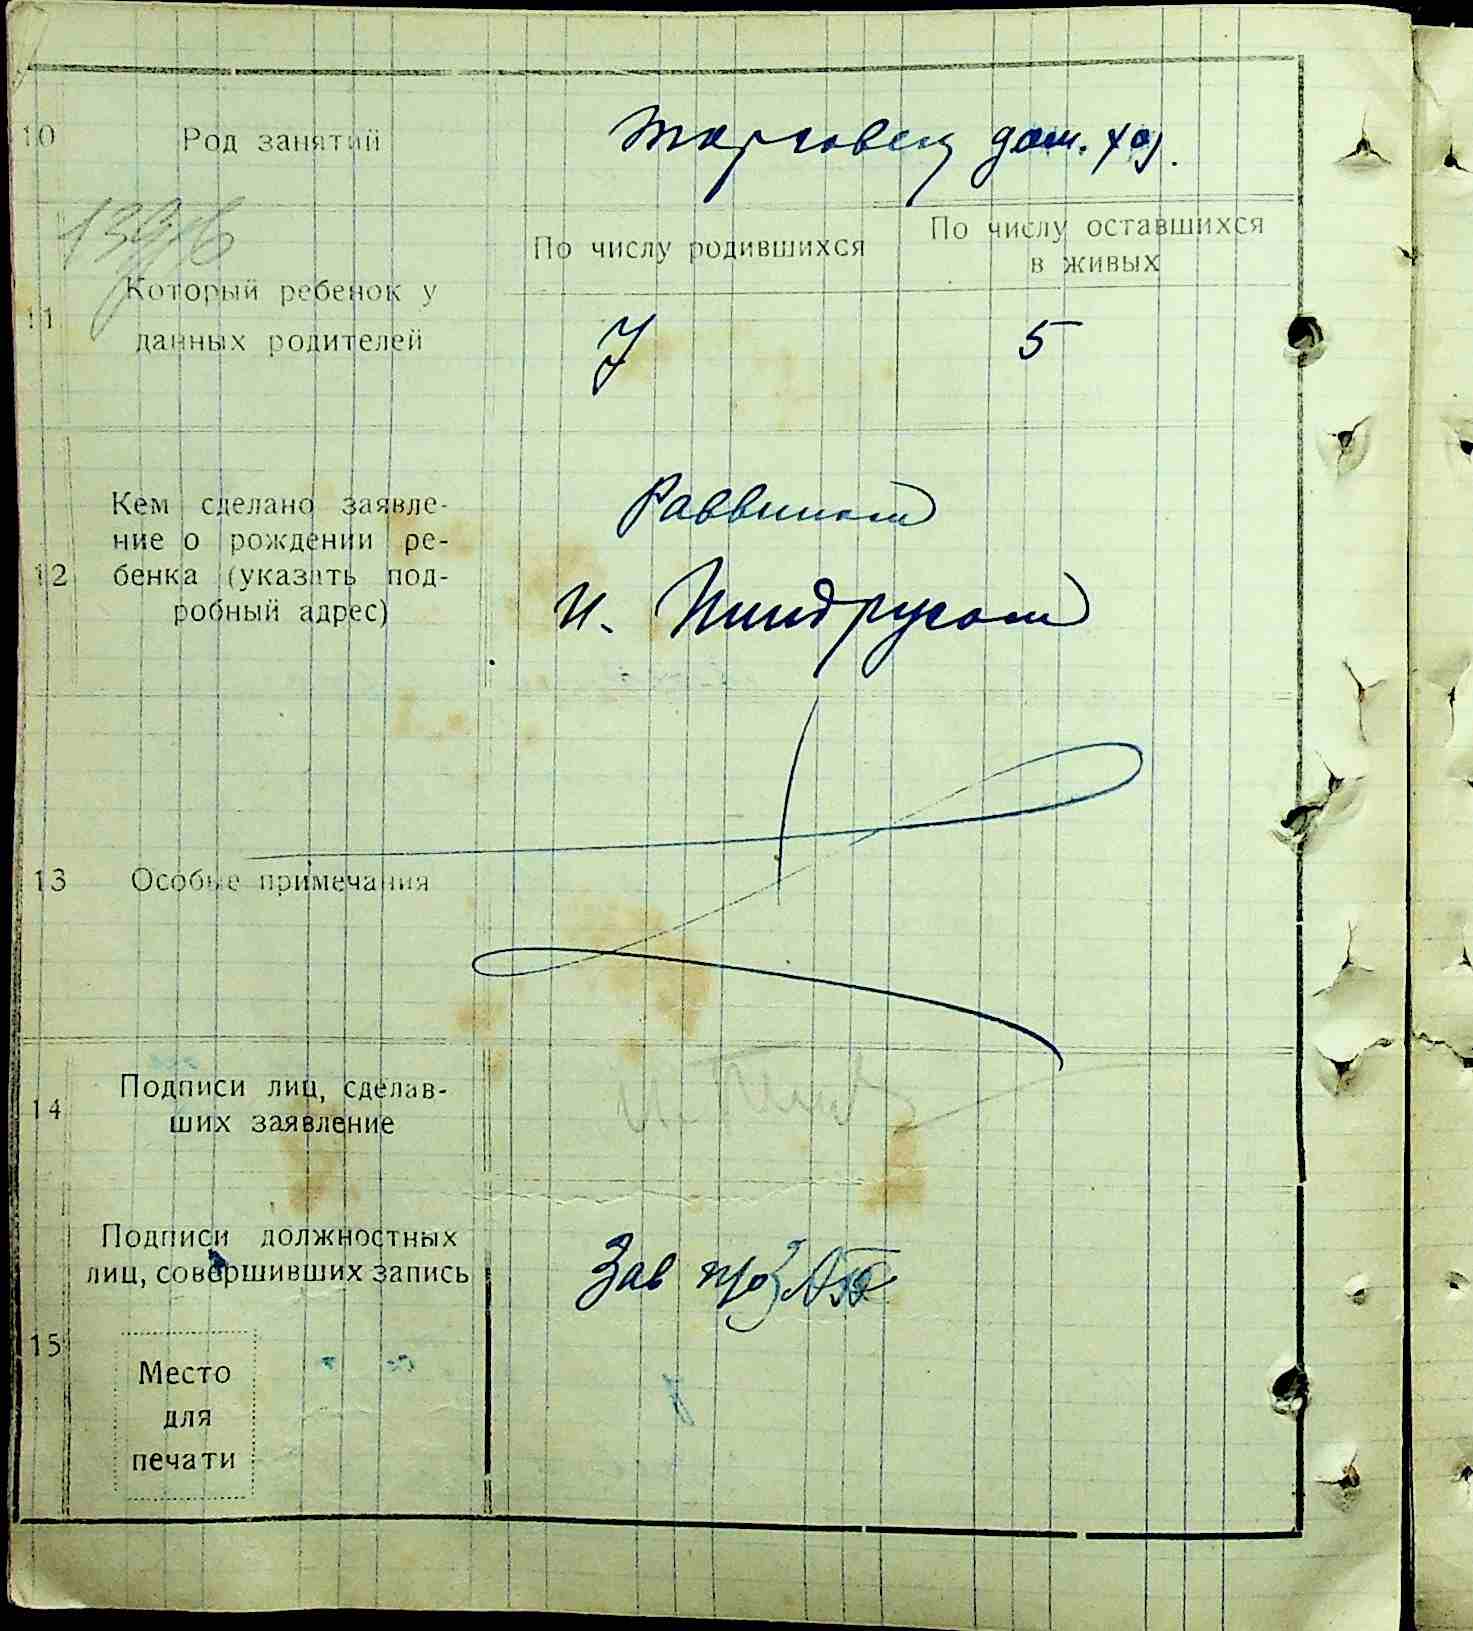 10
Род занятий
торговец дом. хоз.
11
Который ребенок у
данных родителей
По числу родившихся
По числу оставшихся
в живых
7
5
12
Кем сделано заявле-
ние о рождении ре-
бенка (указать под-
робный адрес)
Раввином
И. Пиндрусом
13
Особые примечания
14
Подписи лиц, сделав-
ших заявление
15
Подписи должностных
лиц, совершивших запись
Зав
Место
для
печати